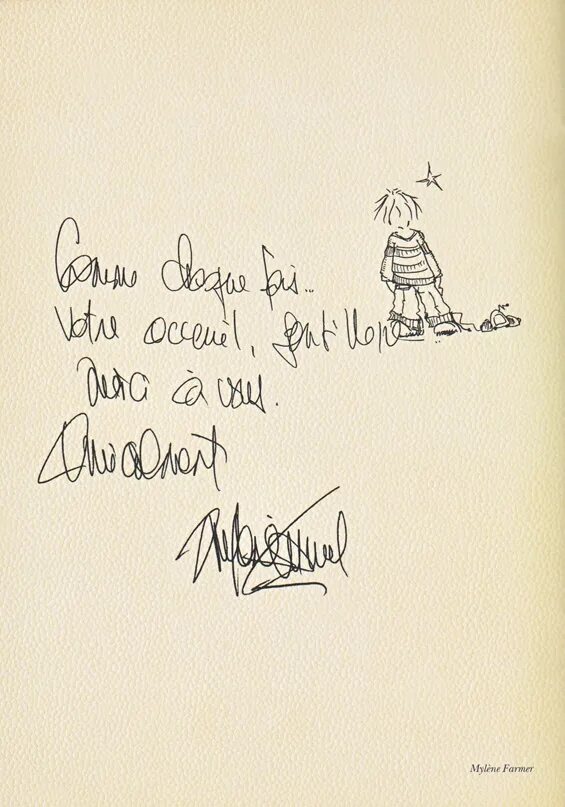 Comme chaque fois...
Votre acceuil, gentillesse
Merci à vous.
Amicalement
Mylène Farmer